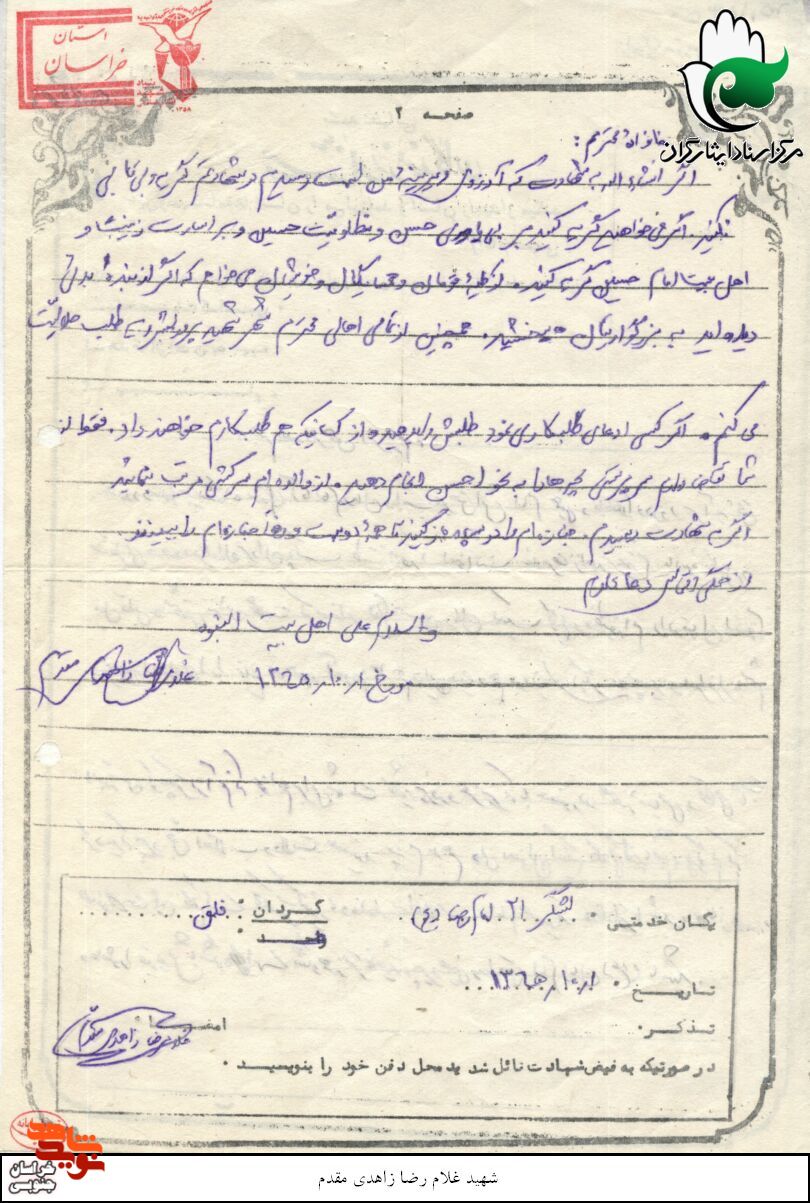 استان
خراسان
۱۳۵۸
مرکز اسناد ایثارگران
صفحه ۲
خانوادهٔ محترم:
اگر انشاءاله به شهادت که آرزوی دیرینه من است رسیدم در شهادتم گریه و بی تابی
نکنید. اگر می خواهید گریه کنید بر بی یاوری حسن و مظلومیت حسین و بر اسارت زینب و
اهل بیت امام حسین گریه کنید. از کلیه قومان و همسایگان و خویشان می خواهم که اگر از بنده بدی
دیده اید به بزرگواریتان ببخشید. همچنین از تمامی اهالی محترم شهر شهید پرور طلب حلالیت
می کنم. اگر کسی ادعای طلبکاری نمود طلبش را بدهید و از کسانیکه هم طلبکارم خواهند داد. فقط از
شما تقاضا دارم سرپرستی بچه ها را به نحو احسن انجام دهید. از والده ام سرکشی مرتب بنمائید
اگر به شهادت رسیدم. جنازه ام را در باز کنید تا همه دوست و جنازه ام را ببینند
از همگی التماس دعا دارم
والسلام علی اهل بیت النبوه
مورخ ۱۰/۱/ ۱۳۶۵
غلامرضا زاهدی مقدم
یگان خدمتی: لشگر ۲۱ امام رضا (ع) گردان: فلق
واحد
تاریخ: ۱۰/۱/ ۱۳۶۵
امضاء
غلامرضا زاهدی مقدم
تذکر:
در صورتیکه به فیض شهادت نائل شدید محل دفن خود را بنویسید.
نوید شاهد
خراسان
جنوبی
شهید غلام رضا زاهدی مقدم